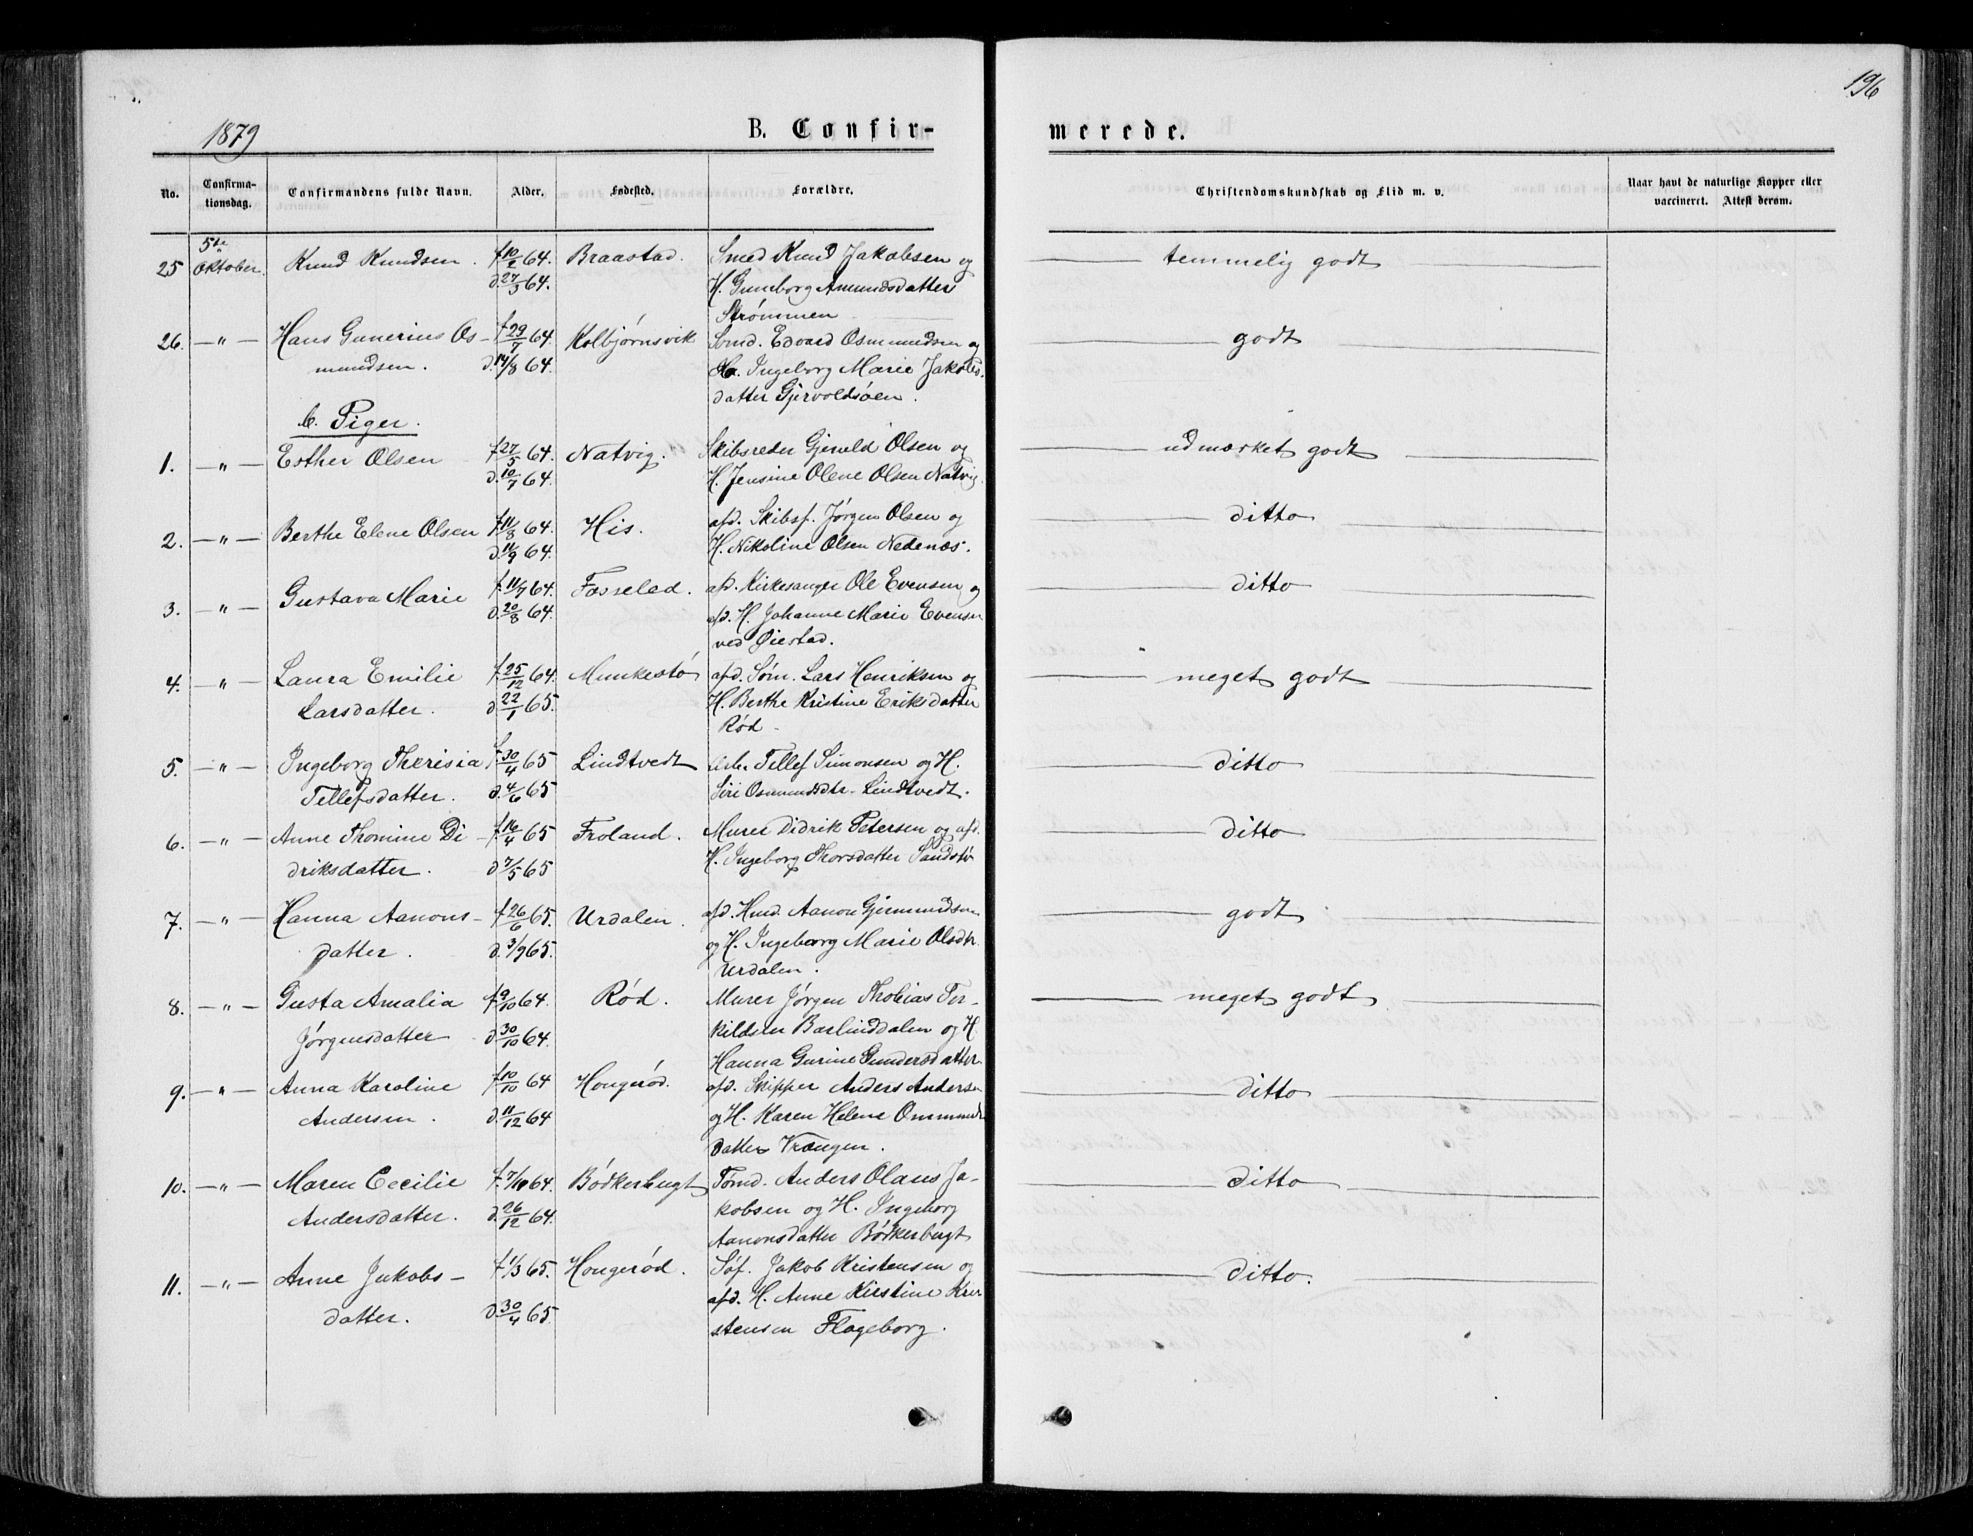 196
1879
B. Confir-
merede.
No.
Confirma-
tionsdag.
Confirmandens fulde Navn.
Alder.
Fødested.
Forældre.
Christendomskundskab og Flid m. v.
Naar havt de naturlige Kopper eller
vaccineret. Attest derom.
25 5te Oktober. Knud Knudsen. f. 10/2 64. Braastad. Smed Knud Jakobsen og temmelig godt
d. 27/3 64. H. Guneborg Amundsdatter
Strømmen
26. —"— Hans Gunerius Os- f. 29/7 64. Kolbjørnsvik Sømd. Edvard Osmundsen og godt
mundsen. d. 14/8 64. H. Ingeborg Marie Jakobs-
datter Gjervoldsøen.
b. Piger.
1. —"— Esther Olsen f. 27/5 64. Natvig. Skibsreder Gjeruld Olsen og udmærket godt
d. 10/7 64. H. Jensine Olene Olsen Natvig.
2. —"— Berthe Elene Olsen f. 11/8 64. His. afd. Skibsf. Jørgen Olsen og ditto
d. 11/9 64. H. Nikoline Olsen Nedenæs.
3. —"— Gustava Marie f. 11/7 64. Fosselad. afd. Kirkesanger Ole Evensen og ditto
d. 20/8 64. afd. H. Johanne Marie Evensen
ved Øiestad.
4. —"— Laura Emilie f. 25/12 64. Munkestø afd. Søm. Lars Henriksen og meget godt
Larsdatter. d. 22/1 65. H. Berthe Kristine Eriksdatter
Rød.
5. —"— Ingeborg Theresia f. 30/4 65 Lindtvedt Arb. Tellef Simonsen og H. ditto
Tellefsdatter. d. 4/6 65 Siri Osmundsdtr. Lindtvedt.
6. —"— Anne Thomine Di- f. 16/4 65 Froland. Murer Didrik Petersen og afd. ditto
driksdatter. d. 7/5 65 H. Ingeborg Thorsdatter Sandstø
7. —"— Hanna Aanons- f. 26/6 65. Urdalen. afd. Hmd. Aanon Gjermundsen godt
datter. d. 3/9 65. og H. Ingeborg Marie Olsdtr.
Urdalen.
8. —"— Gusta Amalia f. 9/10 64. Rød. Murer Jørgen Thobias Ter- meget godt
Jørgensdatter d. 30/10 64. kildsen Barlinddalen og H.
Hanna Gurine Gundersdatter
9. —"— Anna Karoline f. 10/10 64 Hougerød. afd. Skipper Anders Andersen ditto
Andersen. d. 11/12 64 og H. Karen Helene Ommunds-
datter Vrængen.
10. —"— Maren Cecilie f. 7/10 64. Bødkerbugt Tømd. Anders Olaus Ja- ditto
Andersdatter. d. 26/12 64. kobsen og H. Ingeborg
Aanonsdatter Bødkerbugt
11. —"— Anne Jakobs- f. 1/3 65. Hougerød. Søf. Jakob Kristensen og ditto.
datter. d. 30/4 65 afd. H. Anne Kirstine Kri-
stensen Flageborg.